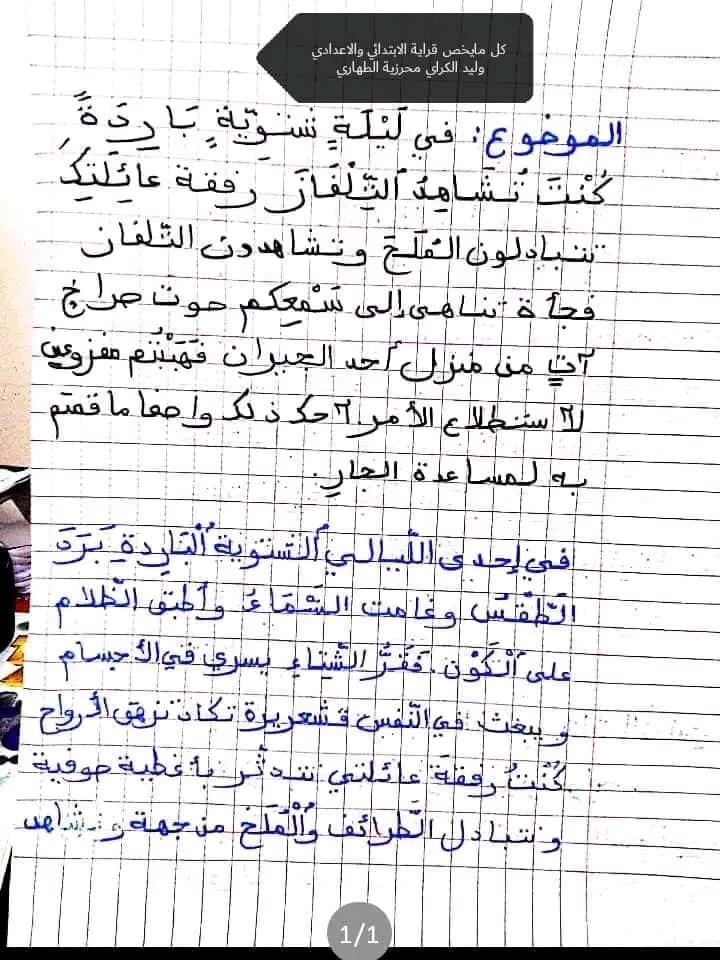 كل مايخص قراية الابتدائي والاعدادي
وليد الكراي محرزية الطهاري
الموضوع: في لَيْلَةٍ شتويّةٍ بَارِدَةً
كُنْتَ تُشَاهِدُ التِّلْفَازَ رفقة عائِلَتِكَ
تتبادلون المُلَحَ وتشاهدون التلفاز
فجأة تناهى إلى سَمْعِكم صوت صراخ
آتٍ من منزل أحد الجيران فَهَبْتُم مفزوعين
لاستطلاع الأمر. احك ذلك واصفا ما قمتم
به لمساعدة الجار.
في إحدى اللّيالي الشتوية الْبَاردةِ بَرَدَ
الطّقْسُ وغامت السَّمَاءُ وأطبق الظّلام
على الْكَوْن. فَقَرُّ الشِّتاءِ يسري في الأجسام
ويبعث في النّفس قشعريرة تكاد تزهق الأرواح
كُنْتُ رفقةَ عائلتي نتدثّر بأغطية صوفية
ونتبادل الطّرائف والْمُلَحَ من جهة ونشاهد
1/1